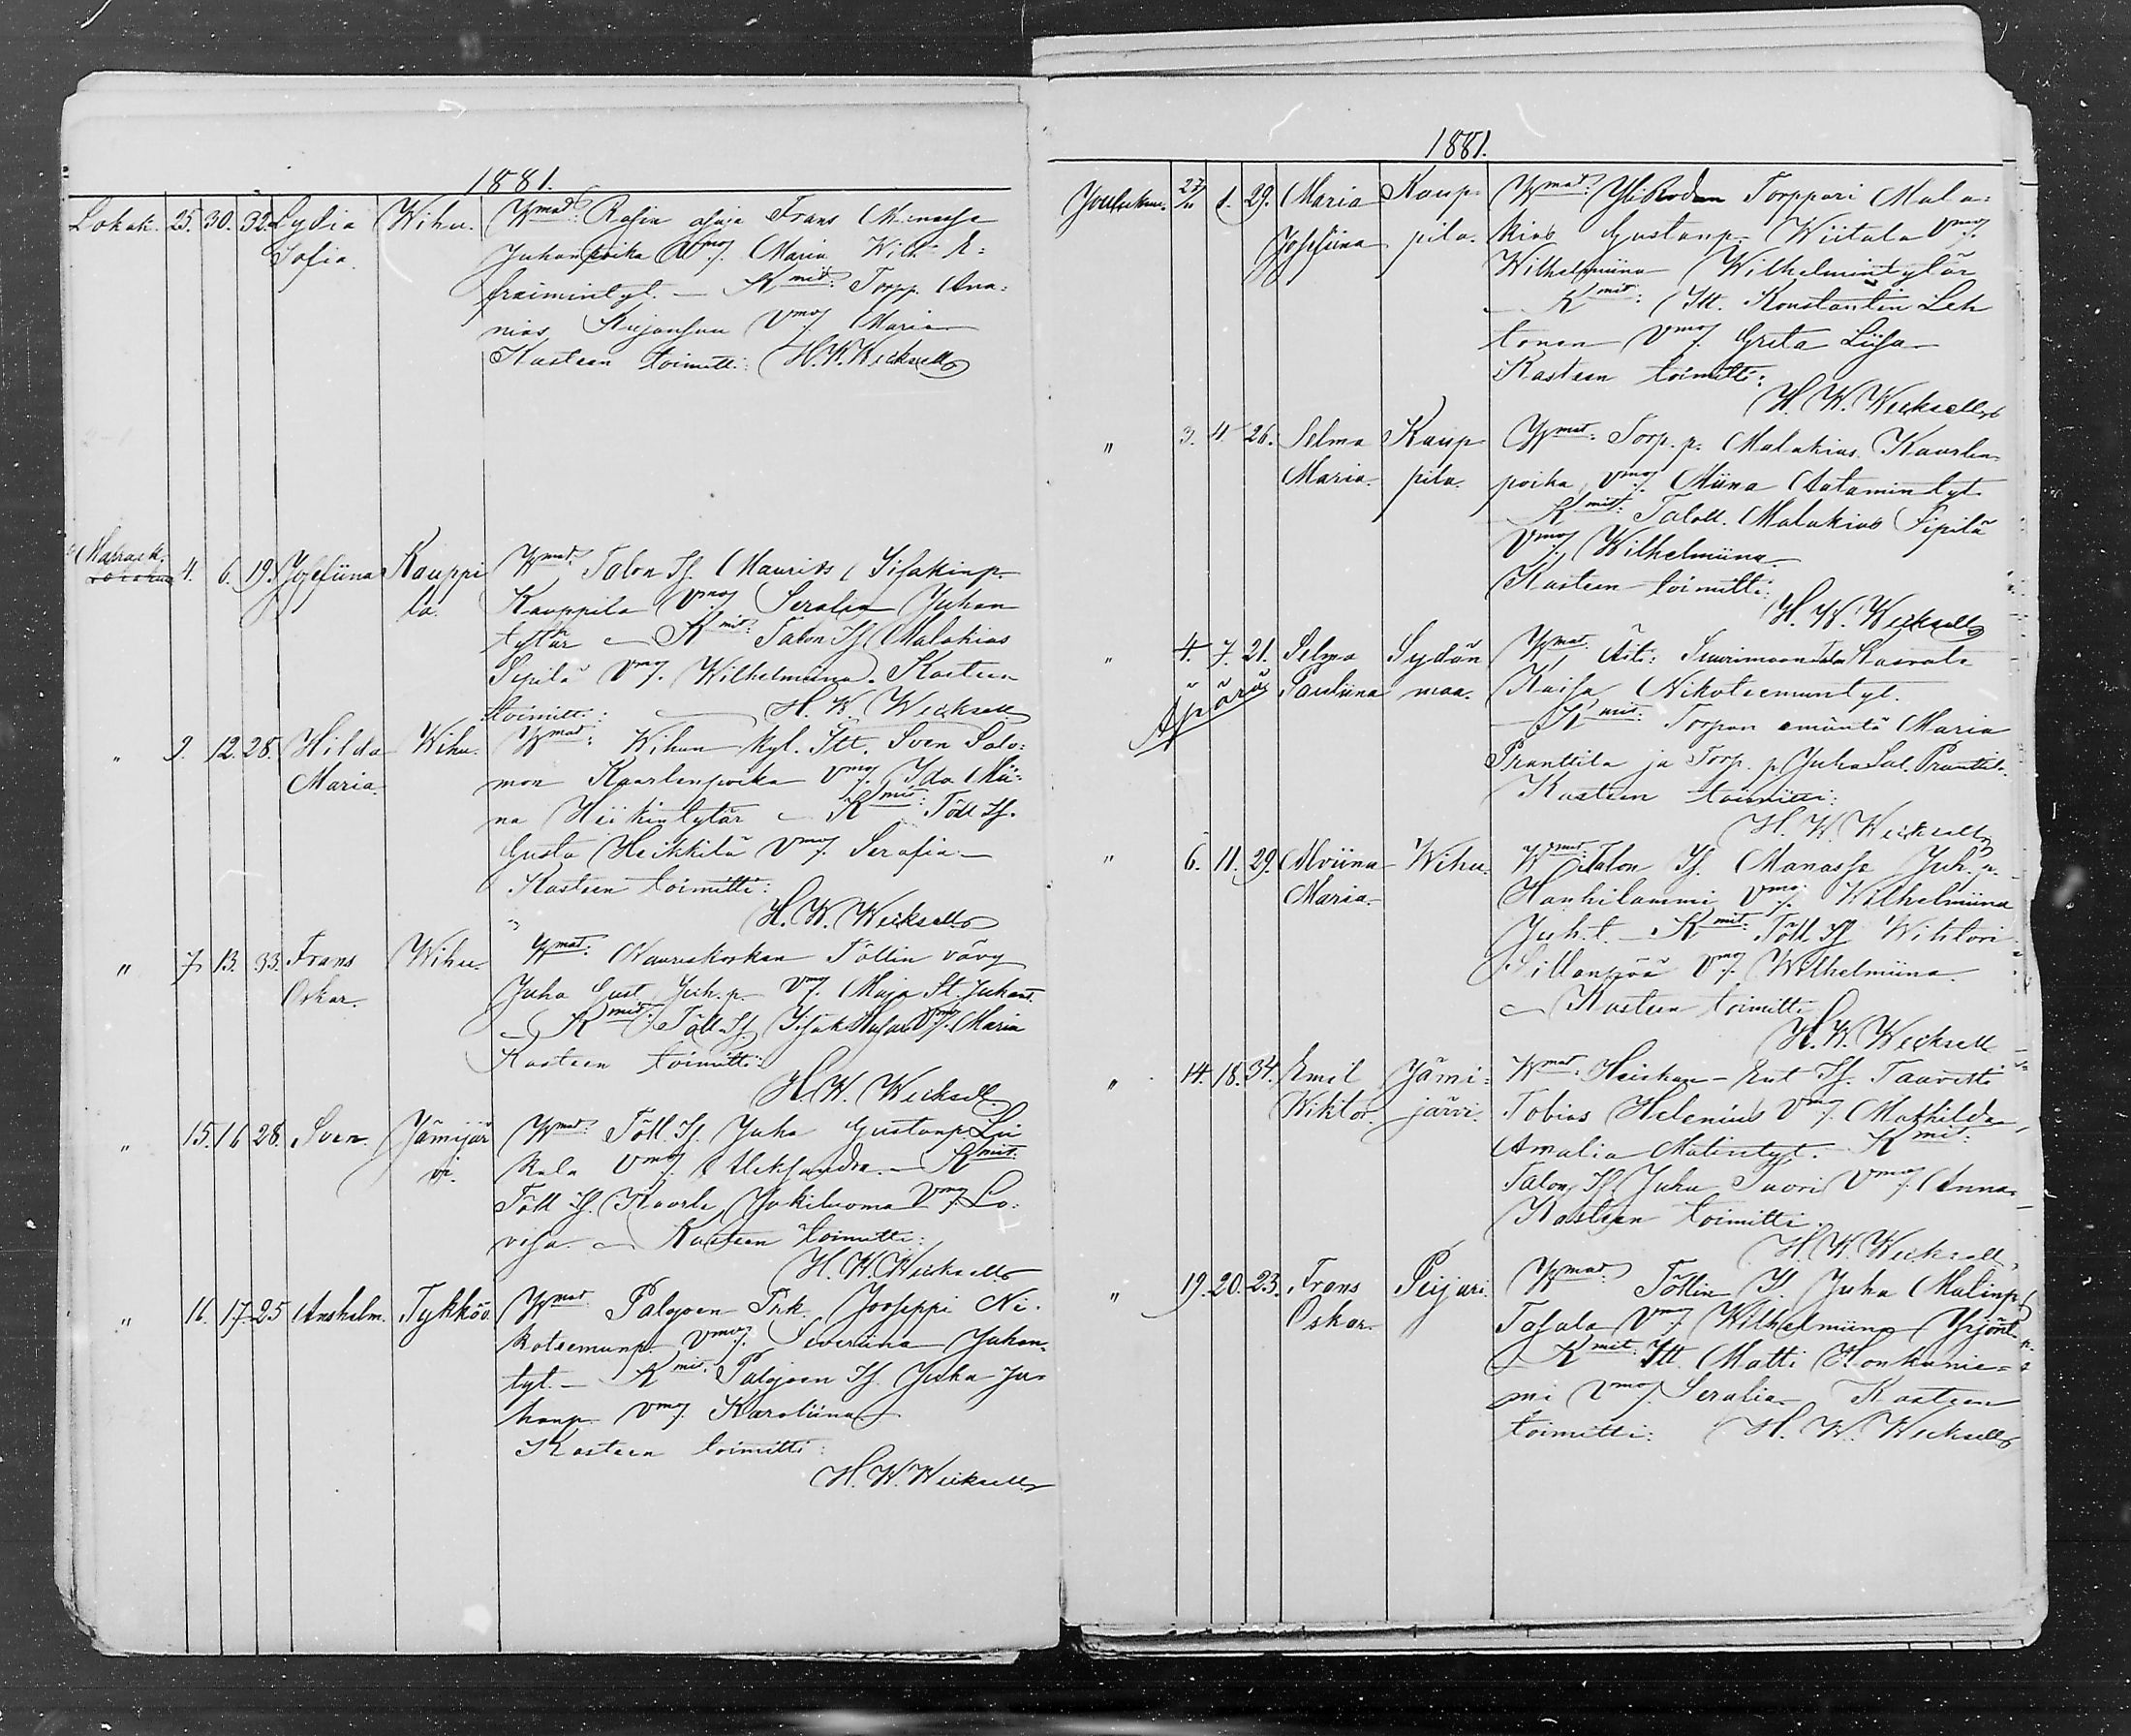 1881.
Lokak. 25. 30. 32. Lydia Wihu. Wmat:
Sofia Juhonpoika Vmoj. Maria Wilh. E:
fraimintyt. — Kmit: Torp. Ana:
nias Vmoj. Maria
Kasteen toimitt.: H. W. Wecksell
Marrask. 4. 6. 19. Josefiina Kauppi Wmat: Talon If. Maurits Iisakinp.
la. Kauppila Vmoj Serafia Juhon
tytär — Kmit: Talon If. Malakias
Sipilä Vmoj. Wilhelmiina. Kasteen
toimitt.: H. W. Wecksell
" 9. 12. 28. Hilda Wihu. Wmat: Wihun kyl. Itt. Sven Salo:
Maria. mon Kaarlenpoika Vmoj. Ida Mii:
na Heikintytär — Kmit: Töll If.
Gusta Heikkilä Vmoj. Serafia —
Kasteen toimitti:
H. W. Wecksell
" 7. 13. 33. Frans Wihu. Wmat: Kauraskosken Töllin vävy
Oskar. Juha Gust. Juh. p. Vmoj. Maja St. Juhant.
— Kmit: Töll. If. Iisak Vmoj. Maria
Kasteen toimitti:
H. W. Wecksell
" 15. 16 28. Sven. Jämijär Wmat: Töll. If. Juha Gustanp. Lii
vi. kala Vmoj. Aleksandra. — Kmit:
Töll If. Kaarle Jokiluoma Vmoj. Lo:
visa. — Kasteen toimitti:
H. W. Wecksell
" 16. 17. 25 Anshelm. Tykköö. Wmat: Palojoen Jooseppi Ni:
koteemunp. Vmoj. Severiina Juhon.
tyt. — Kmit. Palojoen If. Juha Ju:
honp. Vmoj. Karoliina —
Kasteen toimitti:
H. W. Wecksell
1881.
Joulukuu. 27/11 1. 29. Maria Kaup- Wmat: Torppari Mala:
Josefiina pila. kias Gustanp. Wiitala Vmoj.
Wilhelmiina Wilhelmintytär
— Kmit: Itt. Konstantin Leh
tonen Vmoj. Greta Liisa —
Kasteen toimitti:
H. W. Wecksell
" 3. 4 26. Selma Kaup Wmat: Torp. p. Malakias Kaarlen
Maria. pila. poika, Vmoj. Miina Aatamintyt.
Kmit: Taloll. Malakias Sipilä
Vmoj. Wilhelmiina
Kasteen toimitti:
H. W. Wecksell
" 4. 7. 21. Selma Sydän Wmat. Äiti:
Äpärä Pauliina maa. Kaisa Nikoteemuntyt.
— Kmit: Torpan emäntä Maria
Pranttila ja Torp. p. Juha Sal. Pranttila.
Kasteen toimitti:
H. W. Wecksell
" 6. 11. 29. Alviina Wihu. Wmat: Talon If. Manasse Juh. p.
Maria. Hanhilammi Vmoj. Wilhelmiina
Juh. t. — Kmit: Töll If Wihtori
Sillanpää Vmoj. Wilhelmiina.
— Kasteen toimitti
H. W. Wecksell
" 14. 18. 34. Emil Jämi: Wmat: If. Taavetti
Wiktor. järvi. Tobias Helenius Vmoj. Mathilda
Amalia Matintyt. Kmit:
Talon If. Juha Suori Vmoj. Anna.
Kasteen toimitti.
H. W. Wecksell
" 19. 20. 23. Frans Peijari. Wmat. Töllin If. Juha Malinp.
Oskar. Tasala Vmoj. Wilhelmiina Yrjönt.
— Kmit: Itt. Matti Honkanie=
mi Vmoj. Serafia. Kasteen
toimitti: H. W. Wecksell